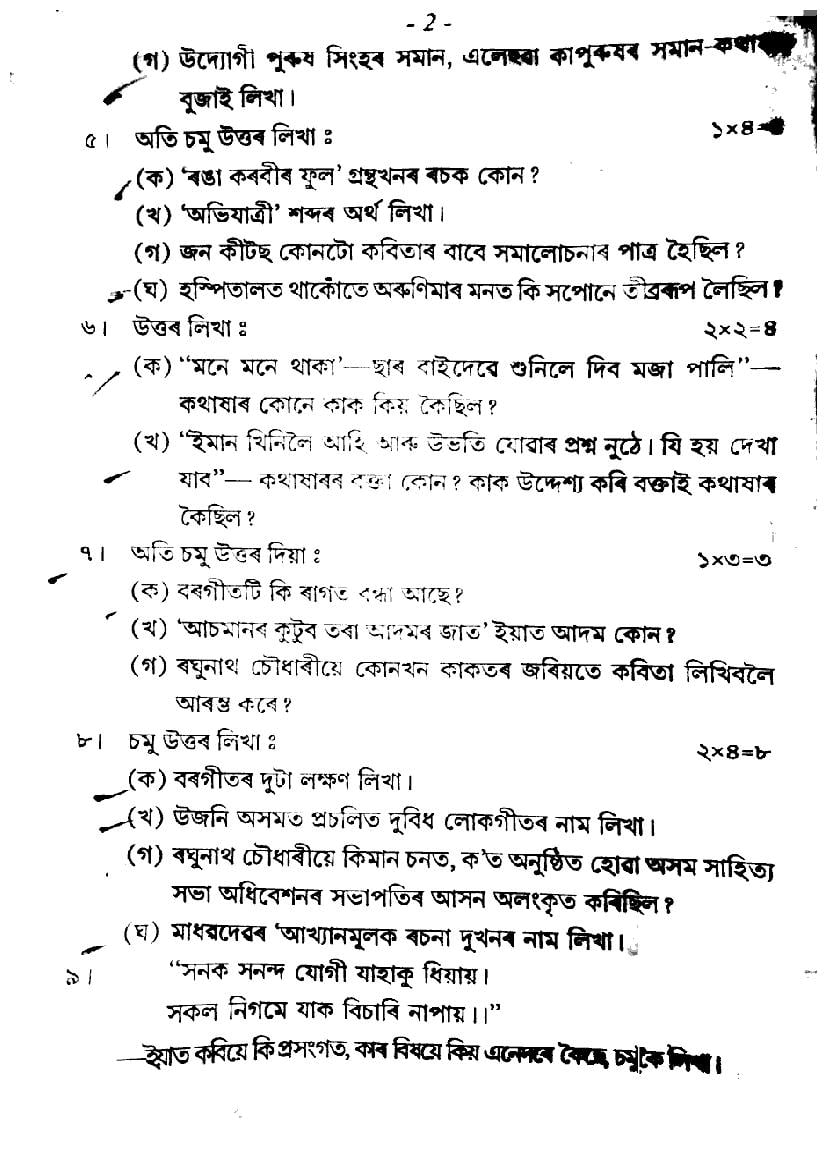 - 2 -
(গ) উদ্যোগী পুৰুষ সিংহৰ সমান, এলেহুৱা কাপুৰুষৰ সমান–কথাষাৰ
বুজাই লিখা।
৫। অতি চমু উত্তৰ লিখা ঃ ১×৪=
(ক) ‘ৰঙা কৰবীৰ ফুল’ গ্ৰন্থখনৰ ৰচক কোন?
(খ) ‘অভিযাত্ৰী’ শব্দৰ অৰ্থ লিখা।
(গ) জন কীটছ কোনটো কবিতাৰ বাবে সমালোচনাৰ পাত্ৰ হৈছিল?
(ঘ) হস্পিতালত থাকোঁতে অৰুণিমাৰ মনত কি সপোনে তীব্ৰৰূপ লৈছিল?
৬। উত্তৰ লিখা ঃ ২×২=৪
(ক) “মনে মনে থাকা’—ছাৰ বাইদেৱে শুনিলে দিব মজা পালি”—
কথাষাৰ কোনে কাক কিয় কৈছিল?
(খ) “ইমান খিনিলৈ আহি আৰু উভতি যোৱাৰ প্ৰশ্ন নুঠে। যি হয় দেখা
যাব”— কথাষাৰৰ বক্তা কোন? কাক উদ্দেশ্য কৰি বক্তাই কথাষাৰ
কৈছিল?
৭। অতি চমু উত্তৰ দিয়া ঃ ১×৩=৩
(ক) বৰগীতটি কি ৰাগত বন্ধা আছে?
(খ) ‘আচমানৰ কুটুব তৰা আদমৰ জাত’ ইয়াত আদম কোন?
(গ) ৰঘুনাথ চৌধাৰীয়ে কোনখন কাকতৰ জৰিয়তে কবিতা লিখিবলৈ
আৰম্ভ কৰে?
৮। চমু উত্তৰ লিখা ঃ ২×৪=৮
(ক) বৰগীতৰ দুটা লক্ষণ লিখা।
(খ) উজনি অসমত প্ৰচলিত দুবিধ লোকগীতৰ নাম লিখা।
(গ) ৰঘুনাথ চৌধাৰীয়ে কিমান চনত, ক’ত অনুষ্ঠিত হোৱা অসম সাহিত্য
সভা অধিবেশনৰ সভাপতিৰ আসন অলংকৃত কৰিছিল?
(ঘ) মাধৱদেৱৰ ‘আখ্যানমূলক ৰচনা দুখনৰ নাম লিখা।
৯। “সনক সনন্দ যোগী যাহাকু ধিয়ায়।
সকল নিগমে যাক বিচাৰি নাপায়।।”
—ইয়াত কবিয়ে কি প্ৰসংগত, কাৰ বিষয়ে কিয় এনেদৰে কৈছে চমুকৈ লিখা।